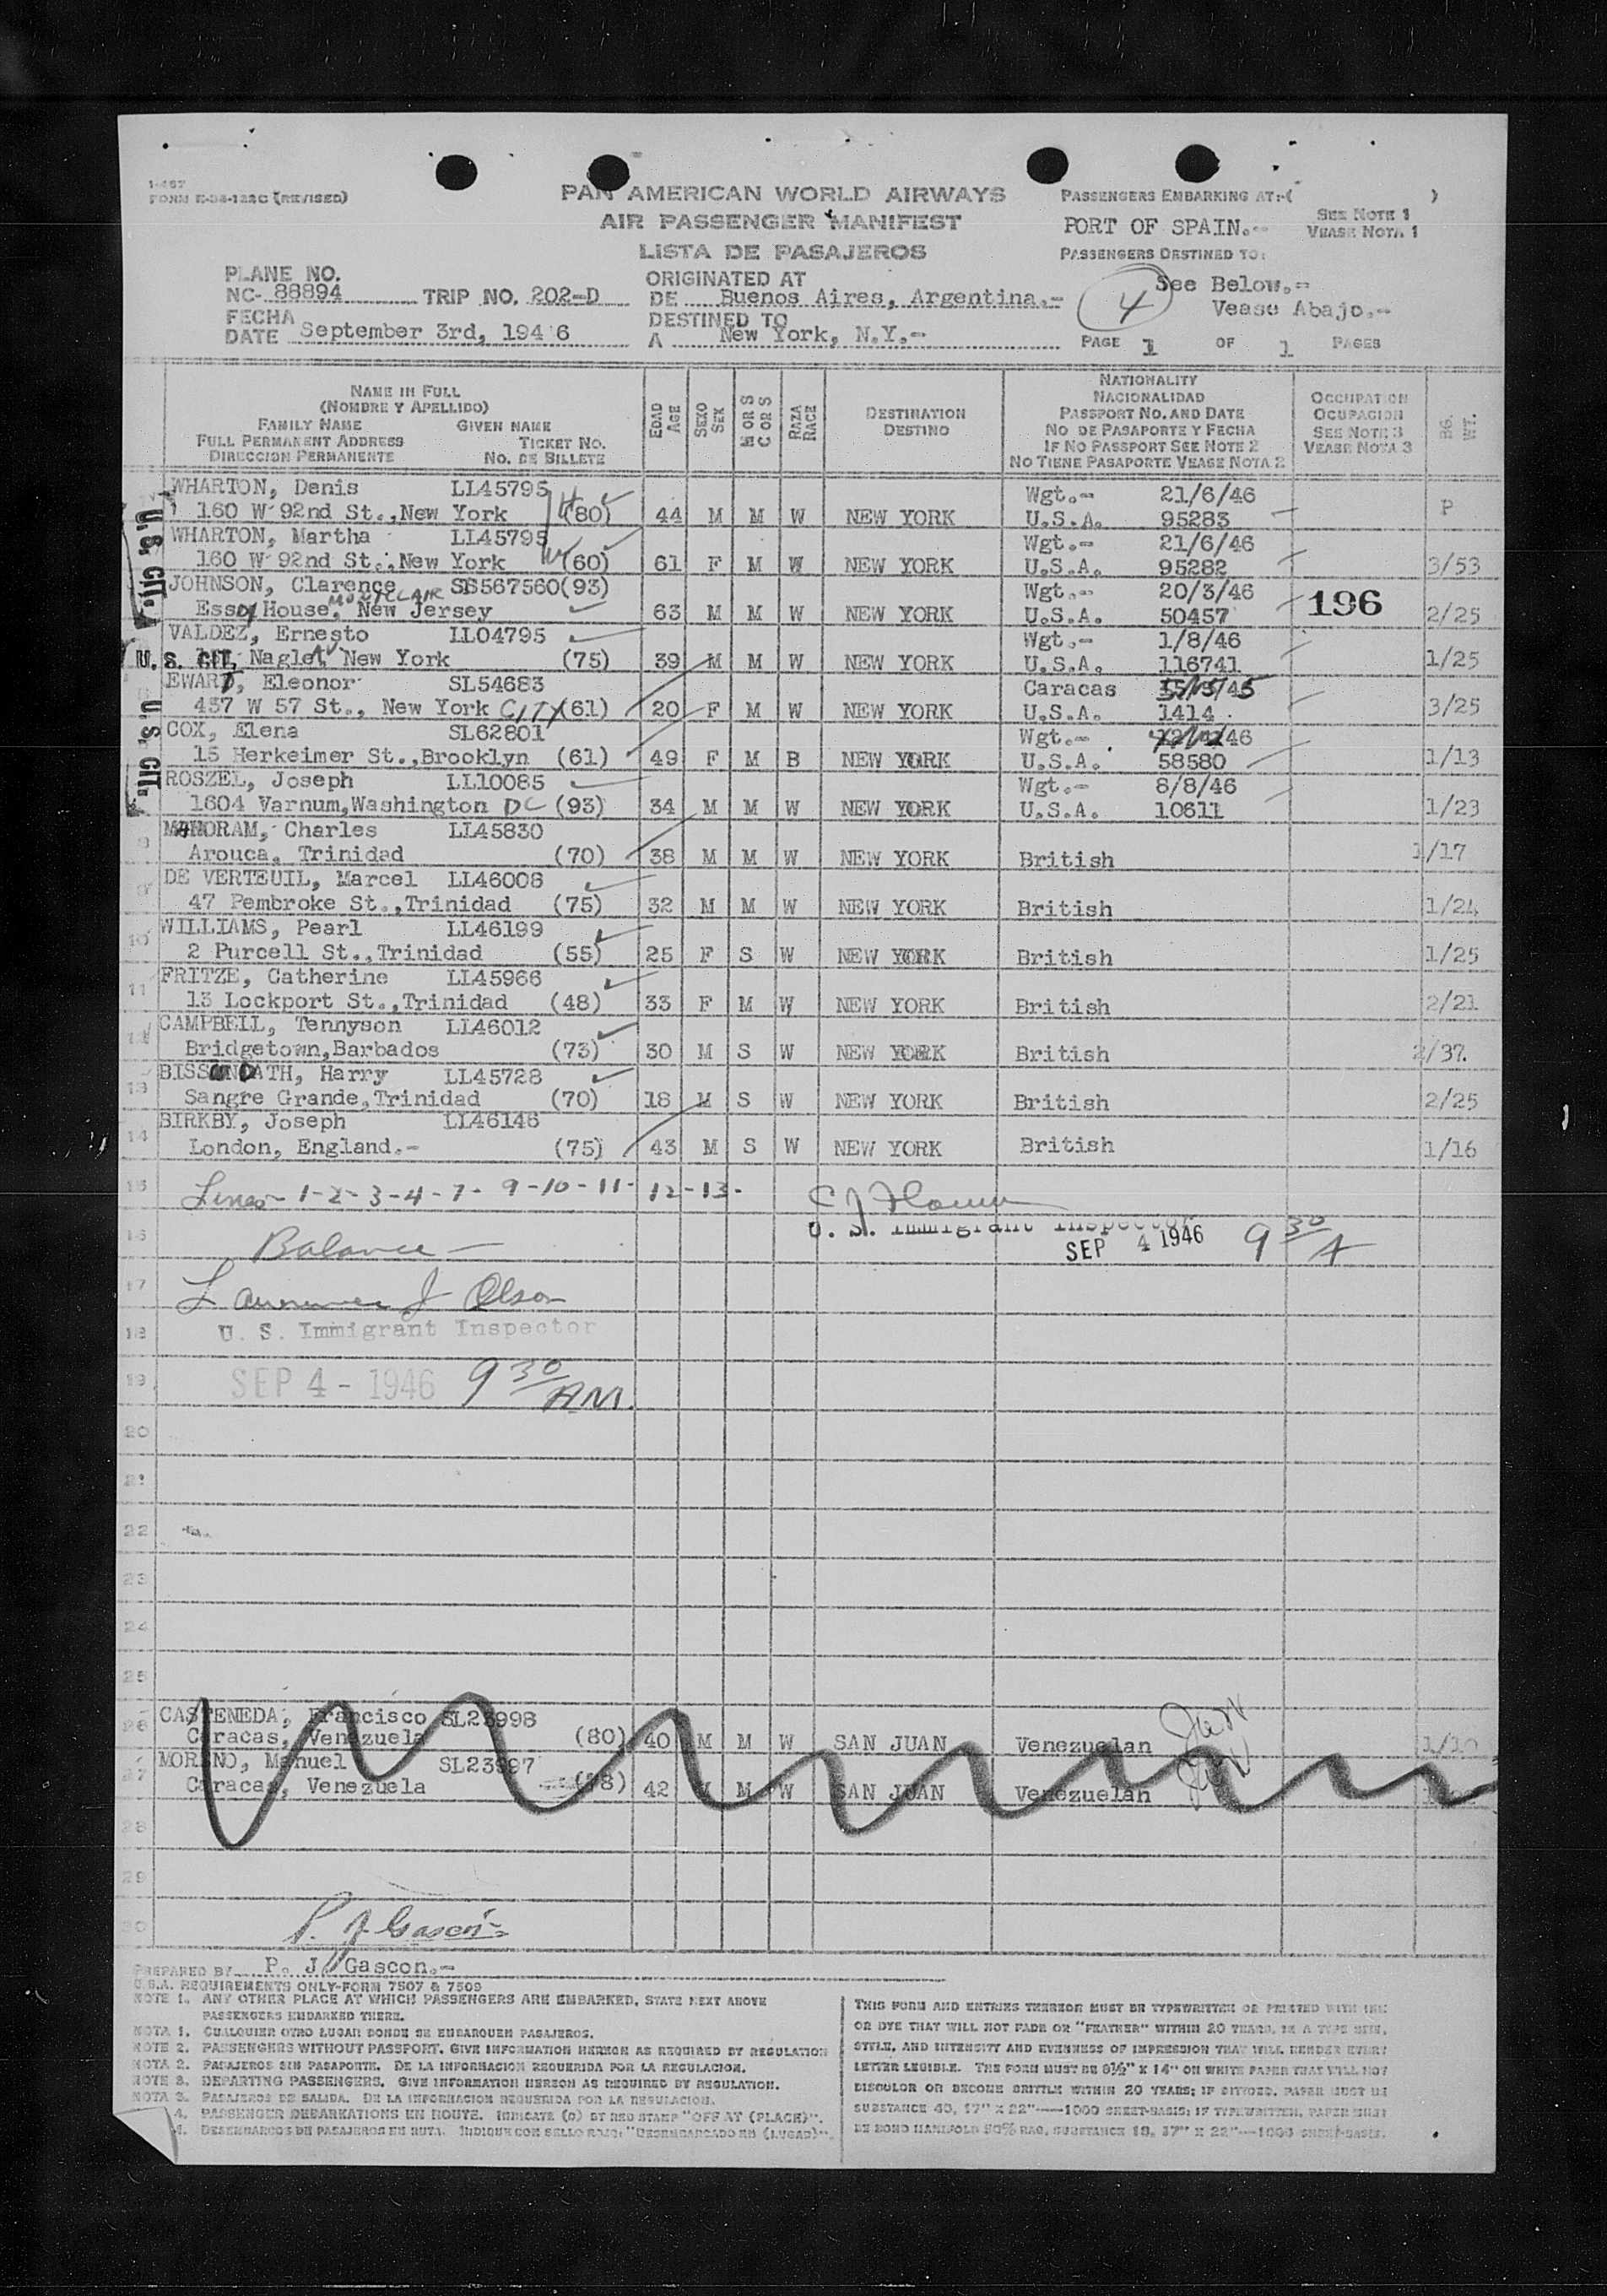 I-467
FORM E-34-122C (REVISED)
PAN AMERICAN WORLD AIRWAYS
AIR PASSENGER MANIFEST
LISTA DE PASAJEROS
PASSENGERS EMBARKING AT:-( )
SEE NOTE 1
VEASE NOTA 1
PORT OF SPAIN.-
PASSENGERS DESTINED TO:
See Below.-
Vease Abajo.-
4
PAGE 1 OF 1 PAGES
PLANE NO.
NC- 88894 TRIP NO. 202-D
FECHA
DATE September 3rd, 194 6
ORIGINATED AT
DE Buenos Aires, Argentina.-
DESTINED TO
A New York, N.Y.-
NAME IN FULL
(NOMBRE Y APELLIDO)
FAMILY NAME GIVEN NAME
FULL PERMANENT ADDRESS TICKET NO.
DIRECCION PERMANENTE NO. DE BILLETE
EDAD AGE
SEXO SEX
M OR S
C OR S
RAZA RACE
DESTINATION
DESTINO
NATIONALITY
NACIONALIDAD
PASSPORT NO. AND DATE
NO DE PASAPORTE Y FECHA
IF NO PASSPORT SEE NOTE 2
NO TIENE PASAPORTE VEASE NOTA 2
OCCUPATION
OCUPACION
SEE NOTE 3
VEASE NOTA 3
BG. WT.
U.S. CIT.
WHARTON, Denis LL45795 Wgt.- 21/6/46
160 W 92nd St.,New York (80) 44 M M W NEW YORK U.S.A. 95283 P
WHARTON, Martha LL45795 Wgt.- 21/6/46
160 W 92nd St.,New York (60) 61 F M W NEW YORK U.S.A. 95282 3/53
JOHNSON, Clarence SS567560(93) Wgt.- 20/3/46
Esso House, MONTCLAIR New Jersey 63 M M W NEW YORK U.S.A. 50457 196 2/25
VALDEZ, Ernesto LL04795 Wgt.- 1/8/46
U. S. CIT. Nagle AV New York (75) 39 M M W NEW YORK U.S.A. 116741 1/25
EWART, Eleonor SL54683 Caracas
437 W 57 St., New York CITY (61) 20 F M W NEW YORK U.S.A. 1414 3/25
U.S. CIT.
COX, Elena SL62801 Wgt.- 46
15 Herkeimer St.,Brooklyn (61) 49 F M B NEW YORK U.S.A. 58580 1/13
ROSZEL, Joseph LL10085 Wgt.- 8/8/46
1604 Varnum,Washington DC (93) 34 M M W NEW YORK U.S.A. 10611 1/23
MAHORAM, Charles LL45830
Arouca, Trinidad (70) 38 M M W NEW YORK British 1/17
DE VERTEUIL, Marcel LL46008
47 Pembroke St.,Trinidad (75) 32 M M W NEW YORK British 1/24
WILLIAMS, Pearl LL46199
10 2 Purcell St.,Trinidad (55) 25 F S W NEW YORK British 1/25
FRITZE, Catherine LL45966
11 13 Lockport St.,Trinidad (48) 33 F M W NEW YORK British 2/21
CAMPBELL, Tennyson LL46012
12 Bridgetown,Barbados (73) 30 M S W NEW YORK British 2/37.
BISSOONDATH, Harry LL45728
13 Sangre Grande,Trinidad (70) 18 M S W NEW YORK British 2/25
BIRKBY, Joseph LL46146
14 London, England.- (75) 43 M S W NEW YORK British 1/16
15 Lines- 1-2-3-4-7- 9-10-11-12-13-
U. S. Immigrant Inspector
SEP 4 1946 9 30 A
16 Balance -
17 Lawrence J Olson
18 U. S. Immigrant Inspector
19 SEP 4 - 1946 9 30 AM.
20
21
22
23
24
25
CASTENEDA, Francisco SL23998
26 Caracas, Venezuela (80) 40 M M W SAN JUAN Venezuelan 1/10
MORENO, Manuel SL23997
27 Caracas, Venezuela 42 M M W SAN JUAN Venezuelan
28
29
30 P. J. Gascon-
PREPARED BY P. J. Gascon.-
U.S.A. REQUIREMENTS ONLY-FORM 7507 & 7509
NOTE 1. ANY OTHER PLACE AT WHICH PASSENGERS ARE EMBARKED, STATE NEXT ABOVE
PASSENGERS EMBARKED THERE.
NOTA 1. CUALQUIER OTRO LUGAR DONDE SE EMBARQUEN PASAJEROS.
NOTE 2. PASSENGERS WITHOUT PASSPORT. GIVE INFORMATION HEREON AS REQUIRED BY REGULATION
NOTA 2. PASAJEROS SIN PASAPORTE. DE LA INFORMACION REQUERIDA POR LA REGULACION.
NOTE 3. DEPARTING PASSENGERS. GIVE INFORMATION HEREON AS REQUIRED BY REGULATION.
NOTA 3. PASAJEROS DE SALIDA. DE LA INFORMACION REQUERIDA POR LA REGULACION.
4. PASSENGER DEBARKATIONS EN ROUTE. INDICATE (O) BY RED STAMP "OFF AT (PLACE)".
4. DESEMBARCOS DE PASAJEROS EN RUTA. INDIQUE CON SELLO ROJO: "DESEMBARCADO EN (LUGAR)".
THIS FORM AND ENTRIES THEREON MUST BE TYPEWRITTEN OR PRINTED WITH INK
OR DYE THAT WILL NOT FADE OR "FEATHER" WITHIN 20 YEARS, IN A TYPE SIZE,
STYLE, AND INTENSITY AND EVENNESS OF IMPRESSION THAT WILL RENDER EVERY
LETTER LEGIBLE. THE FORM MUST BE 8½" X 14" ON WHITE PAPER THAT WILL NOT
DISCOLOR OR BECOME BRITTLE WITHIN 20 YEARS; IF DITTOED, PAPER MUST BE
SUBSTANCE 40, 17" X 22"----1000 SHEET-BASIS; IF TYPEWRITTEN, PAPER MUST
BE BOND MANIFOLD 50% RAG, SUBSTANCE 18, 17" X 22"---1000 SHEET-BASIS.